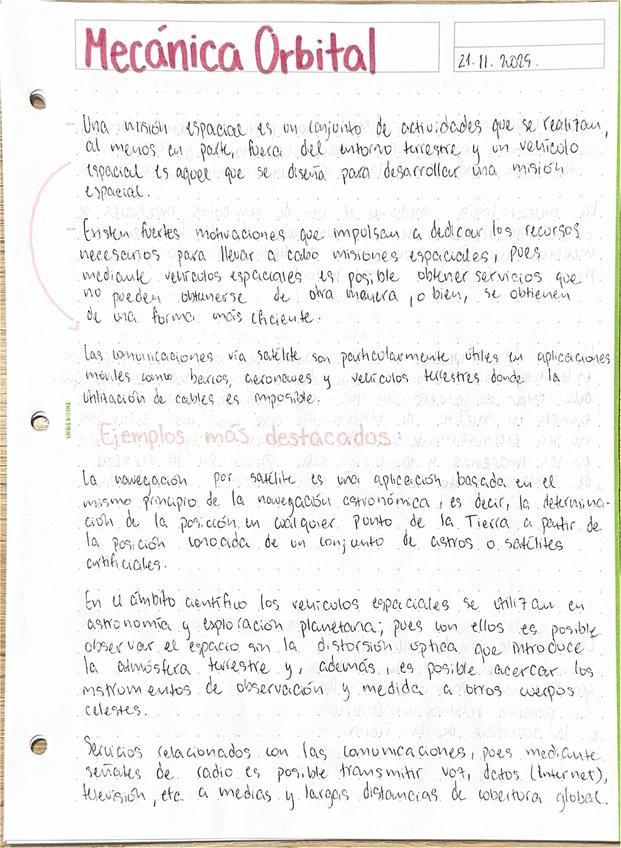 Mecánica Orbital
21.11.2025.
- Una misión espacial es un conjunto de actividades que se realizan,
al menos en parte, fuera del entorno terrestre y un vehículo
espacial es aquel que se diseña para desarrollar una misión
espacial.
- Existen fuertes motivaciones que impulsan a dedicar los recursos
necesarios para llevar a cabo misiones espaciales, pues
mediante vehículos espaciales es posible obtener servicios que
no pueden obtenerse de otra manera, o bien, se obtienen
de una forma más eficiente.
Las comunicaciones vía satélite son particularmente útiles en aplicaciones
móviles como barcos, aeronaves y vehículos terrestres donde la
utilización de cables es imposible.
Ejemplos más destacados:
La navegación por satélite es una aplicación basada en el
mismo principio de la navegación astronómica, es decir, la determina-
ción de la posición en cualquier punto de la Tierra a partir de
la posición conocada de un conjunto de astros o satélites
artificiales.
En el ámbito científico los vehículos espaciales se utilizan en
astronomía y exploración planetaria; pues con ellos es posible
observar el espacio sin la distorsión óptica que introduce
la atmósfera terrestre y, además, es posible acercar los
instrumentos de observación y medida a otros cuerpos
celestes.
Servicios relacionados con las comunicaciones, pues mediante
señales de radio es posible transmitir voz, datos (Internet),
televisión, etc. a medias y largas distancias de cobertura global.